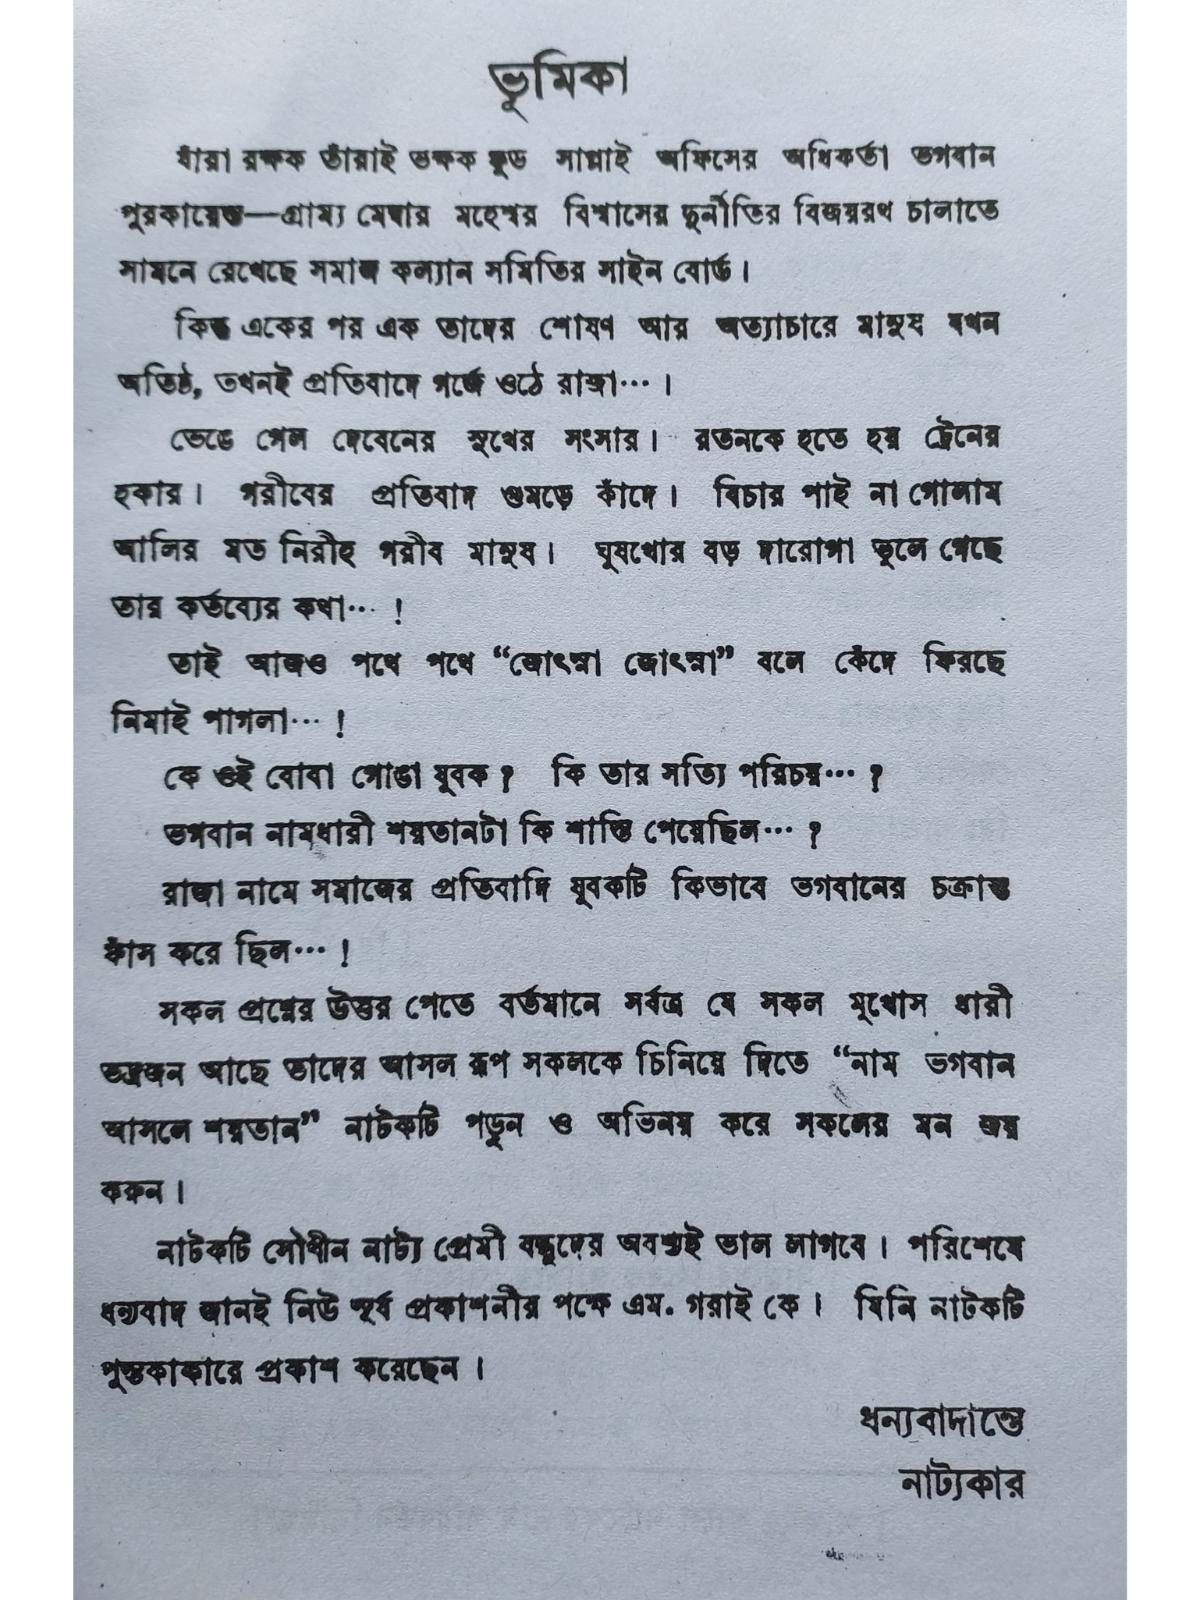 ভূমিকা
যাঁরা রক্ষক তাঁরাই ভক্ষক ফুড সাপ্লাই অফিসের অধিকর্তা ভগবান
পুরকায়েত—গ্রাম্য মেম্বার মহেশ্বর বিশ্বাসের দুর্নীতির বিজয়রথ চালাতে
সামনে রেখেছে সমাজ কল্যান সমিতির সাইন বোর্ড।
কিন্তু একের পর এক তাদের শোষণ আর অত্যাচারে মানুষ যখন
অতিষ্ঠ, তখনই প্রতিবাদে গর্জে ওঠে রাজা···।
ভেঙে গেল দেবেনের সুখের সংসার। রতনকে হতে হয় ট্রেনের
হকার। গরীবের প্রতিবাদ গুমড়ে কাঁদে। বিচার পাই না গোলাম
আলির মত নিরীহ গরীব মানুষ। ঘুষখোর বড় দারোগা ভুলে গেছে
তার কর্তব্যের কথা···!
তাই আজও পথে পথে “জোৎস্না জোৎস্না” বলে কেঁদে ফিরছে
নিমাই পাগলা···!
কে ওই বোবা গোঙা যুবক? কি তার সত্যি পরিচয়···?
ভগবান নামধারী শয়তানটা কি শাস্তি পেয়েছিল···?
রাজা নামে সমাজের প্রতিবাদি যুবকটি কিভাবে ভগবানের চক্রান্ত
ফাঁস করে ছিল···!
সকল প্রশ্নের উত্তর পেতে বর্তমানে সর্বত্র যে সকল মুখোস ধারী
ভদ্রজন আছে তাদের আসল রূপ সকলকে চিনিয়ে দিতে “নাম ভগবান
আসলে শয়তান” নাটকটি পড়ুন ও অভিনয় করে সকলের মন জয়
করুন।
নাটকটি সৌখীন নাট্য প্রেমী বন্ধুদের অবশ্যই ভাল লাগবে। পরিশেষে
ধন্যবাদ জানই নিউ সূর্য প্রকাশনীর পক্ষে এম. গরাই কে। যিনি নাটকটি
পুস্তকাকারে প্রকাশ করেছেন।
ধন্যবাদান্তে
নাট্যকার